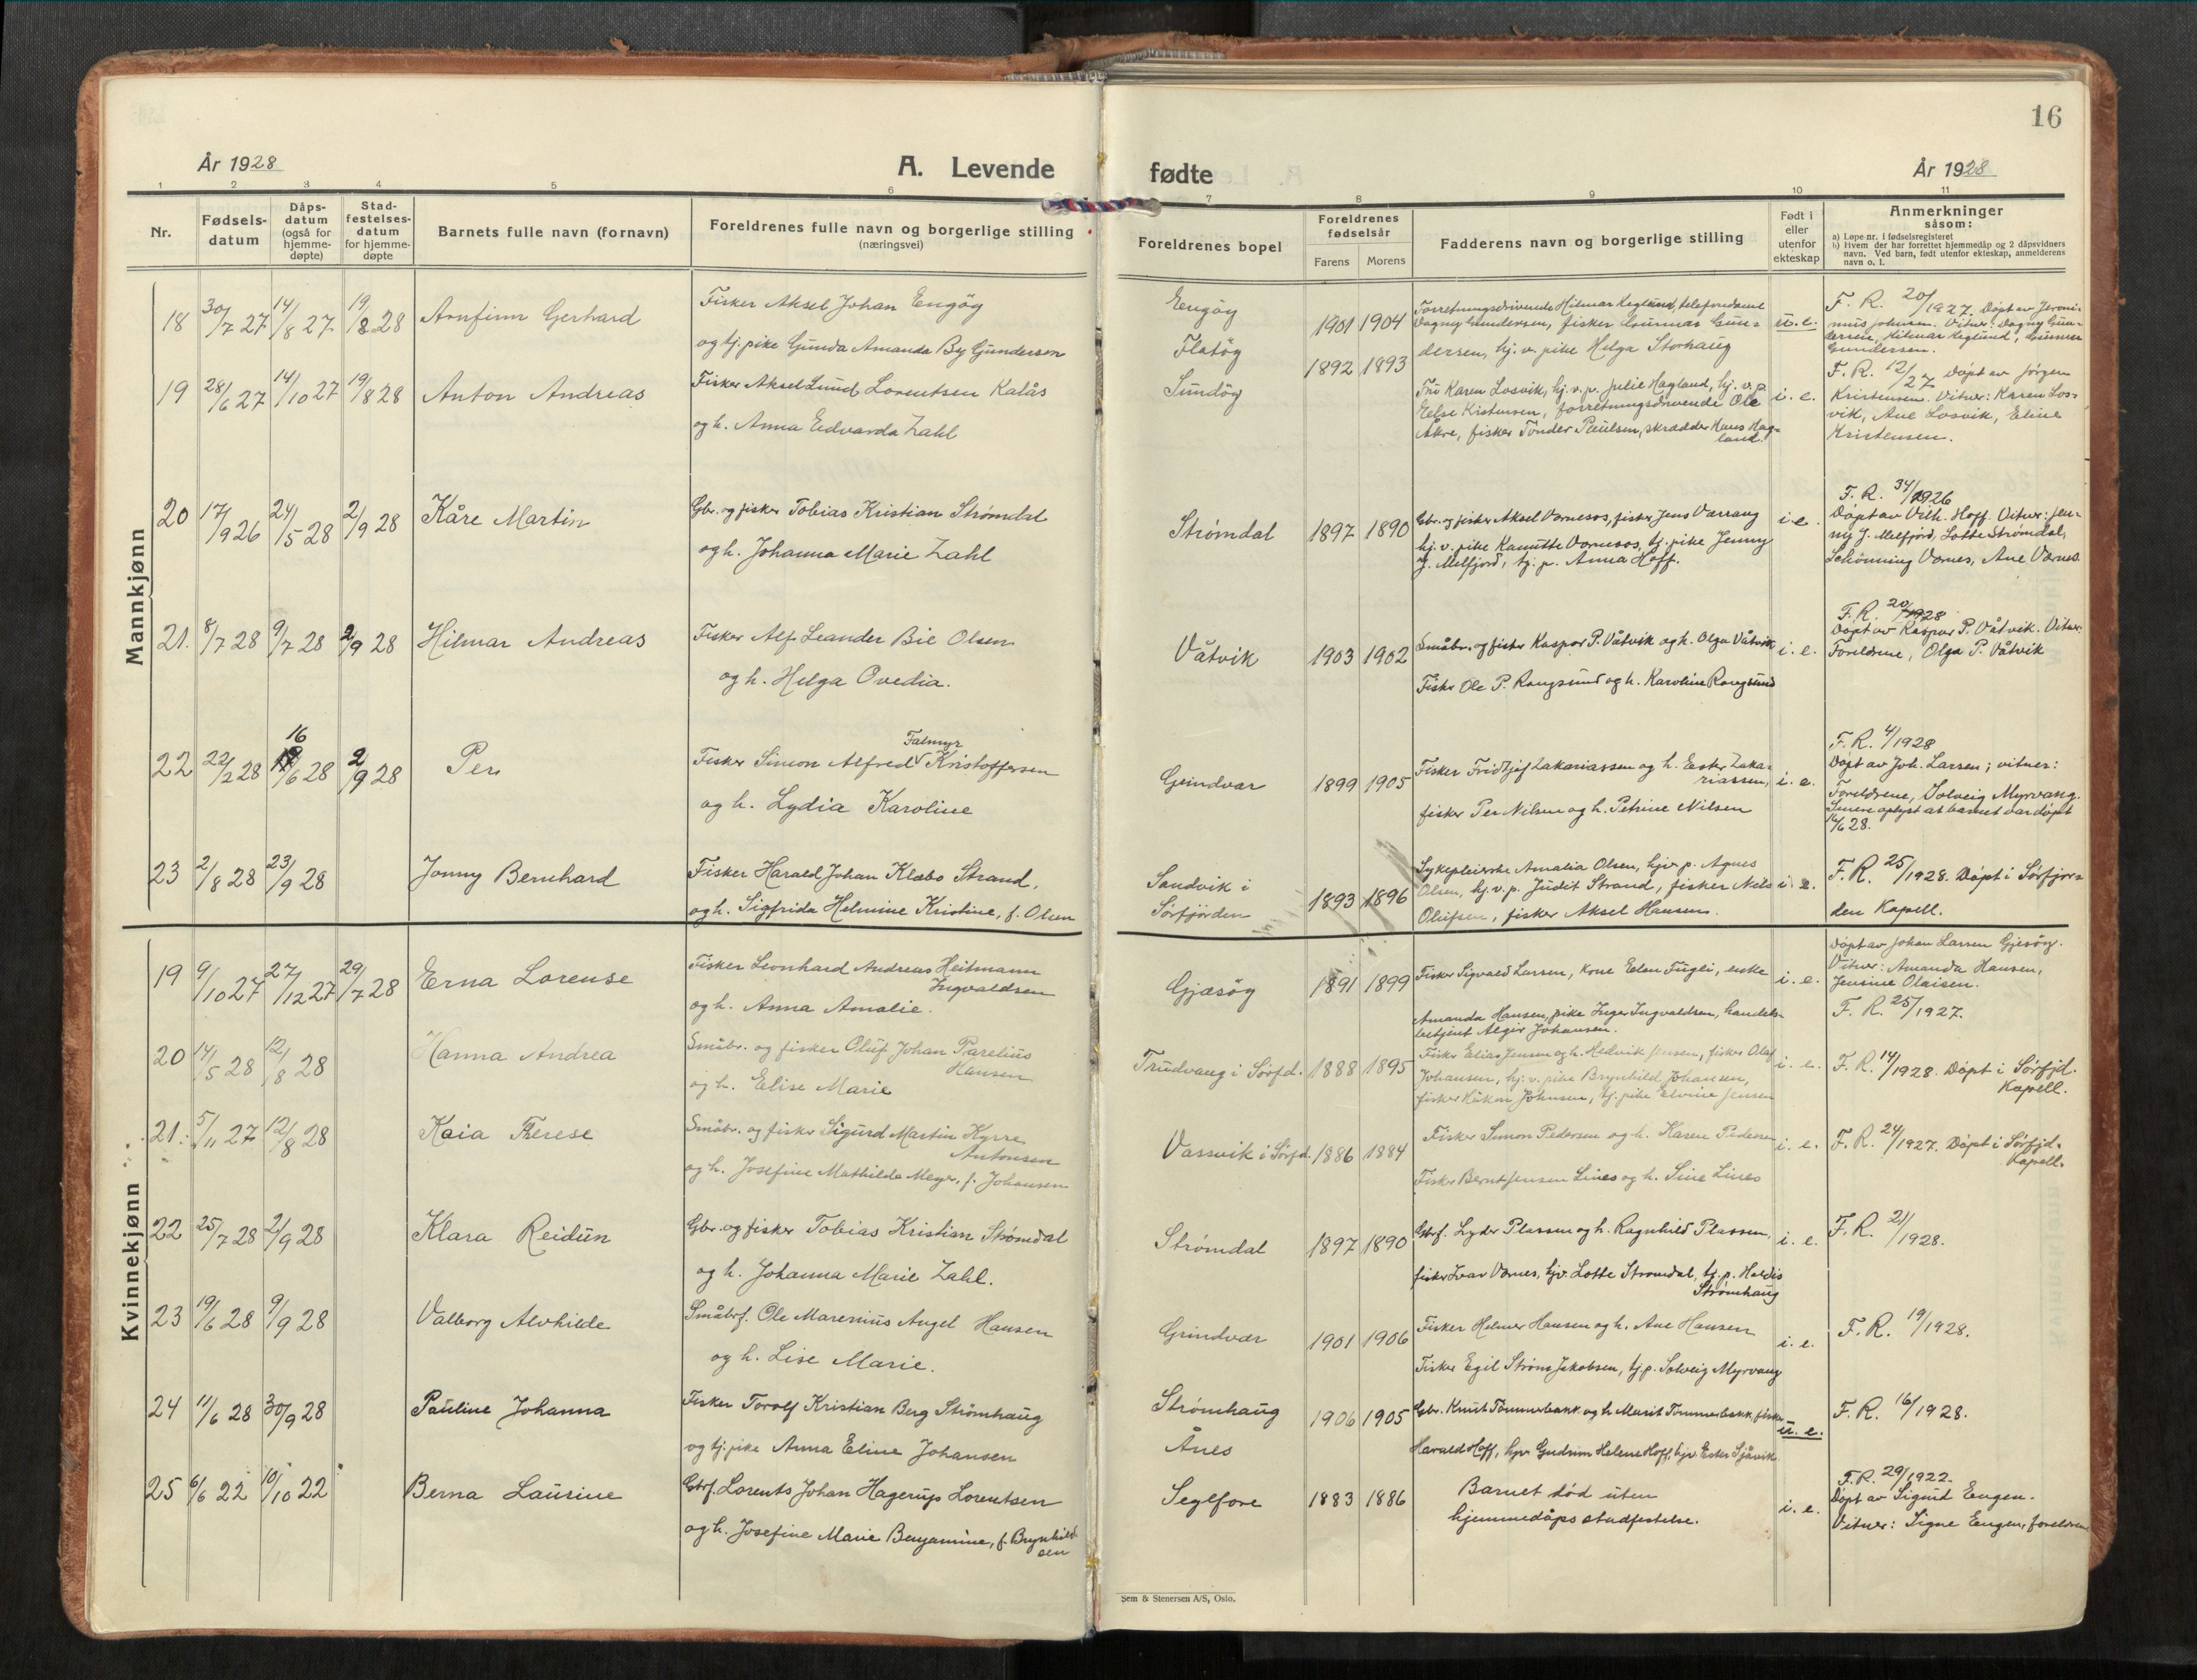 16
År 1928
A. Levende
fødte
År 1928
1 2 3 4 5 6 7 8 9 10 11
Nr.
Fødsels-
datum
Dåps-
datum
(også for
hjemme-
døpte)
Stad-
festelses-
datum
for hjemme-
døpte
Barnets fulle navn (fornavn)
Foreldrenes fulle navn og borgerlige stilling
(næringsvei)
Foreldrenes bopel
Foreldrenes
fødselsår
Farens Morens
Fadderens navn og borgerlige stilling
Født i
eller
utenfor
ekteskap
Anmerkninger
såsom:
a) Løpe nr. i fødselsregisteret
b) Hvem der har forrettet hjemmedåp og 2 dåpsvidners
navn. Ved barn, født utenfor ekteskap, anmelderens
navn o. l.
Mannkjønn
18 30/7 27 14/8 27 19/8 28 Arnfinn Gerhard
Fisker Aksel Johan Engöy
og tj. pike Gunda Amanda By Gundersen
Engöy
Flatöy
1901 1904
Forretningsdrivende Hilmar Keglund, telefondame
Dagny Gundersen, fisker Gunnar Gun-
dersen, hj. v. pike Helga Storhaug
u. e.
F. R. 20/1927. Döpt av Jeroni-
mus Johnsen. Vitner: Dagny Gun-
dersen, Hilmar Keglund, Gunnar
Gundersen.
19 28/6 27 14/10 27 19/8 28 Anton Andreas
Fisker Aksel Lund Lorentsen Kalås
og h. Anna Edvarda Zahl
Sundöy
1892 1893
Fru Karen Losvik, hj. v. p. Julie Hagland, hj. v. p.
Else Kistensen, forretningsdrivende Ole
Åkre, fisker Tönder Paulsen, skrædder Hans Hag-
land.
i. e.
F. R. 12/27 Döpt av Jørgen
Kristensen. Vitner: Karen Los-
vik, Ane Losvik, Eline
Kristensen.
20 17/9 26 24/5 28 2/9 28 Kåre Martin
Gbr. og fisker Tobias Kristian Strømdal
og h. Johanna Marie Zahl
Strømdal
1897 1890
Gbr. og fisker Aksel Værnesos, fisker Jens Værrang
hj. v. pike Kanutte Værnesos, tj. pike Jenny
J. Melfjord, tj. p. Anna Hoff.
i. e.
F. R. 34/1926
Döpt av Vilh. Hoff. Vitner: Jen-
ny J. Melfjord, Lotte Strømdal,
Schönning Værnes, Ane Værnes.
21. 8/7 28 9/7 28 2/9 28 Hilmar Andreas
Fisker Alf Leander Bie Olsen
og h. Helga Ovedia.
Våtvik
1903 1902
Småbr. og fisker Kaspar P. Våtvik og h. Olga Våtvik
Fisker Ole P. Rangsund og h. Karoline Rangsund
i. e.
F. R. 20/1928
Döpt av Kaspar P. Våtvik. Vitner:
Foreldrene, Olga P. Våtvik
22 22/2 28 16/6 28 2/9 28 Per
Falmyr
Fisker Simon Alfred Kristoffersen
og h. Lydia Karoline
Grindvær
1899 1905
Fisker Fridtjof Zakariassen og h. Ester Zaka-
riassen,
fisker Per Nilsen og h. Petrine Nilsen
i. e.
F. R. 4/1928
Döpt av Joh. Larsen; vitner:
Foreldrene, Solveig Myrvang.
Senere oplyst at barnet var döpt
16/6 28.
23 2/8 28 23/9 28 Jonny Bernhard
Fisker Harald Johan Klæbo Strand,
og h. Sigfrida Helmine Kristine, f. Olsen
Sandvik i
Sörfjorden
1893 1896
Sykepleierske Amalia Olsen, hjv. p. Agnes
Olsen, hj. v. p. Judit Strand, fisker Nils
Olufsen, fisker Aksel Hansen.
i. e.
F. R. 25/1928. Döpt i Sörfjor-
den Kapell.
Kvinnekjønn
19 9/10 27 27/12 27 29/7 28 Erna Lorense
Fisker Leonhard Andreas Heitmann
Ingvaldsen
og h. Anna Amalie.
Gjæsöy
1891 1899
Fisker Sigvald Larsen, kone Elen Fugli, enke
Amanda Hansen, pike Inger Ingvaldsen, handels-
betjent Aegir Johansen.
i. e.
Döpt av Johan Larsen Gjesöy.
Vitner: Amanda Hansen,
Jensine Olaisen.
F. R. 25/1927.
20 14/5 28 12/8 28 Hanna Andrea
Småbr. og fisker Oluf Johan Parelius
Hansen
og h. Elise Marie
Trudvang i Sörfd.
1888 1895
Fisker Elias Jensen og h. Hedvik Jensen, fisker Olaf
Johansen, hj. v. pike Brynhild Johansen,
fisker Håkon Johnsen, tj. pike Elvine Jensen
i. e.
F. R. 14/1928. Döpt i Sörfjd.
Kapell.
21. 5/11 27 12/8 28 Kaia Therese
Småbr. og fisker Sigurd Martin Kyrre
Antonsen
og h. Josefine Mathilde Meyer, f. Johansen
Vassvik i Sörfd.
1886 1884
Fisker Simon Pedersen og h. Karen Pedersen
Fisker Bernt Jensen Lines og h. Sine Lines
i. e.
F. R. 24/1927. Döpt i Sörfjd.
Kapell.
22 25/7 28 2/9 28 Klara Reidun
Gbr. og fisker Tobias Kristian Strømdal
og h. Johanna Marie Zahl.
Strømdal
1897 1890
Gbrf. Lyder Plassen og h. Ragnhild Plassen,
fisker Ivar Værnes, hjv. Lotte Strømdal, tj. p. Haldis
Strømhaug
i. e.
F. R. 21/1928.
23 19/6 28 9/9 28 Valborg Alvhilde
Småbrf. Ole Marenius Angel Hansen
og h. Lise Marie.
Grindvær
1901 1906
Fisker Helmer Hansen og h. Ane Hansen
Fisker Egil Ström Jakobsen, tj. p. Solveig Myrvang
i. e.
F. R. 19/1928.
24 11/6 28 30/9 28 Pauline Johanna
Fisker Torolf Kristian Berg Strömhaug
og tj. pike Anna Eline Johansen
Strömhaug
Ånes
1906 1905
Gbr. Knut Tømmerbakk og h. Marit Tømmerbakk, fisker
Harald Hoff, hjv. Gudrun Helene Hoff, hjv. Ester Sjåvik
u. e.
F. R. 16/1928.
25 6/6 22 10/10 22 Berna Laurine
Gbrf. Lorents Johan Hagerup Lorentsen
og h. Josefine Marie Benjamine, f. Brynhild-
sen
Seglfore
1883 1886
Barnet död uten
hjemmedåps stadfestelse.
i. e.
F. R. 29/1922.
Döpt av Sigurd Engen.
Vitner: Signe Engen, foreldrene
Sem & Stenersen A/S, Oslo.